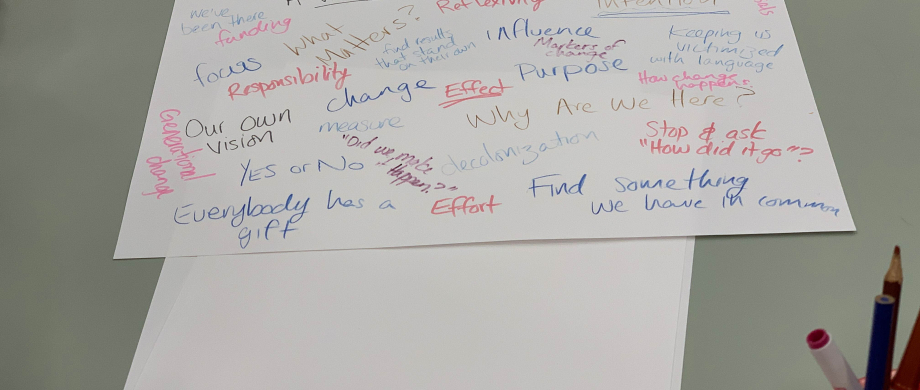 we've
been there
funding
What
Matters?
Reflexivity
Intention
find results
that stand
on their own
influence
Markers of
change
Keeping us
victimized
with language
focus
Responsibility
change
Effect
Purpose
How change
happens
Generational
change
Our Own
Vision
measure
Why Are We Here?
Yes or No
"Did we make
it Happen?"
decolonization
Stop & ask
"How did it go"?
Everybody has a
gift
Effort
Find something
we have in common